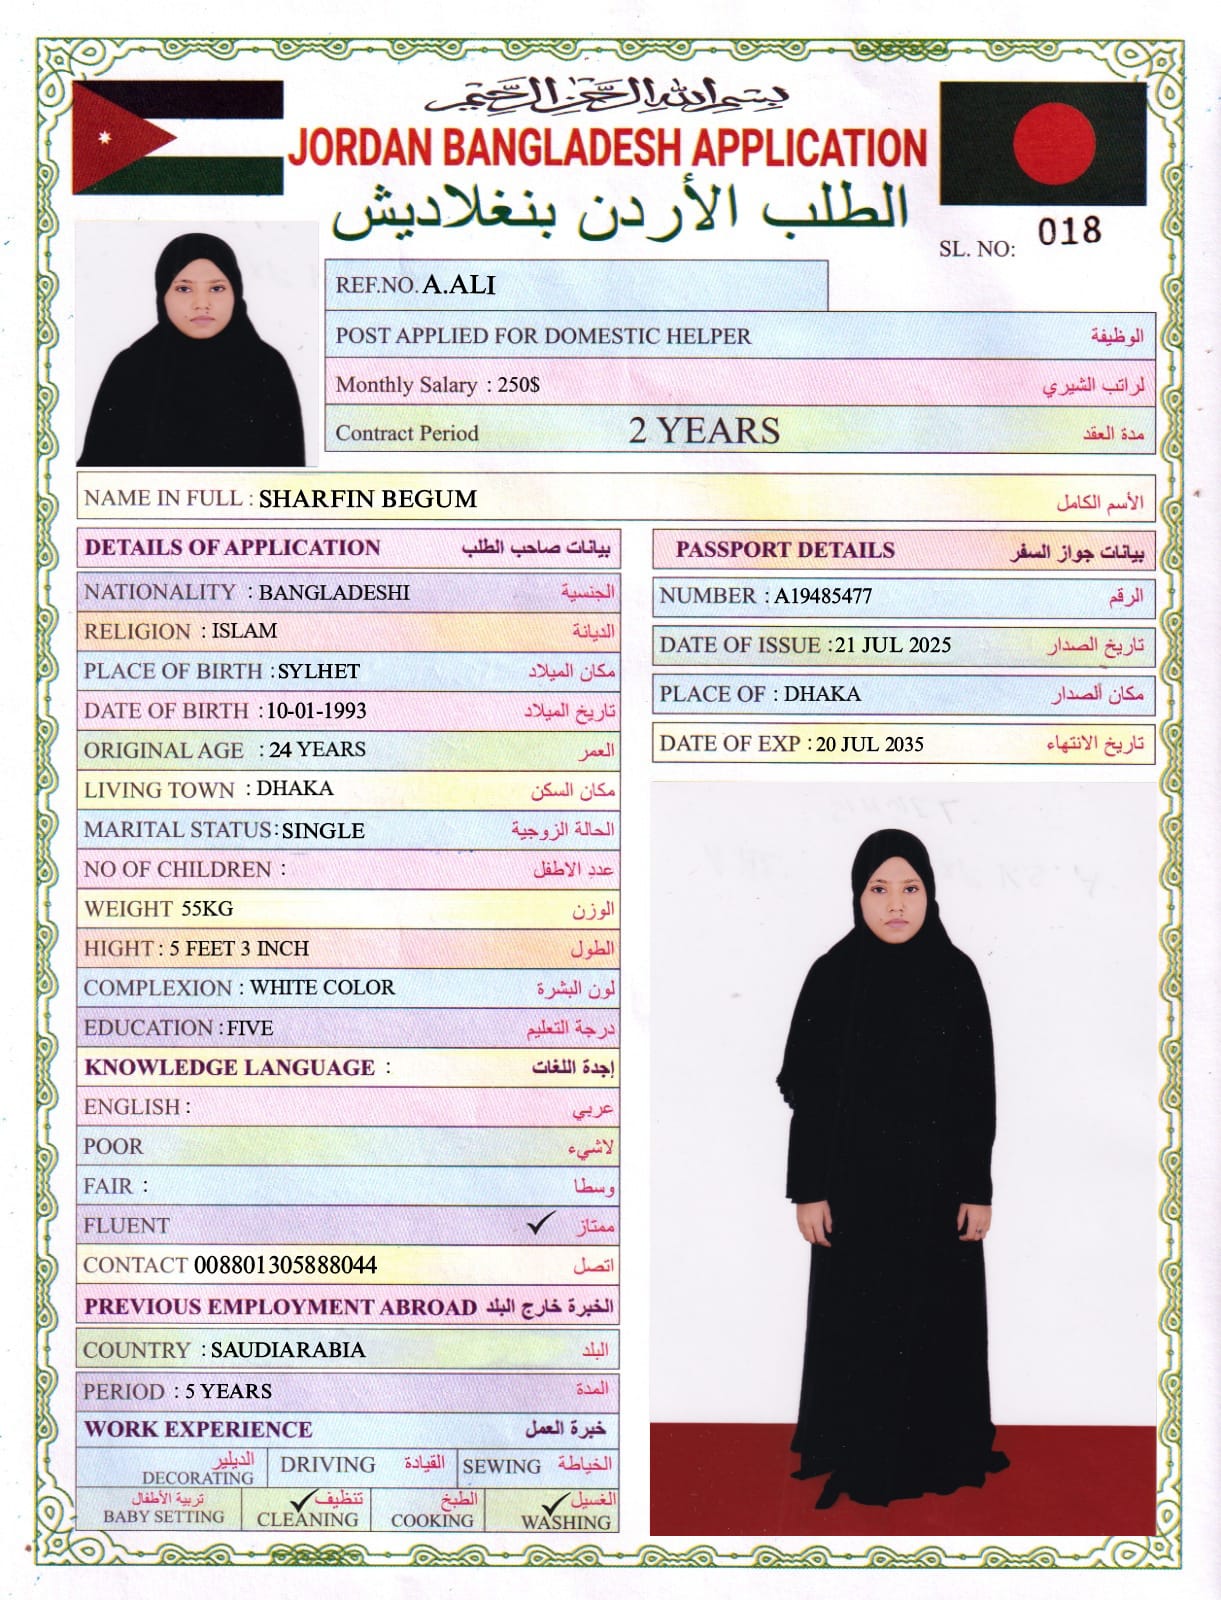 بسم الله الرحمن الرحيم
JORDAN BANGLADESH APPLICATION
الطلب الأردن بنغلاديش
SL. NO: 018
REF.NO. A.ALI
POST APPLIED FOR DOMESTIC HELPER الوظيفة
Monthly Salary : 250$ لراتب الشيري
Contract Period 2 YEARS مدة العقد
NAME IN FULL : SHARFIN BEGUM الأسم الكامل
DETAILS OF APPLICATION بيانات صاحب الطلب
NATIONALITY : BANGLADESHI الجنسية
RELIGION : ISLAM الديانة
PLACE OF BIRTH : SYLHET مكان الميلاد
DATE OF BIRTH : 10-01-1993 تاريخ الميلاد
ORIGINAL AGE : 24 YEARS العمر
LIVING TOWN : DHAKA مكان السكن
MARITAL STATUS: SINGLE الحالة الزوجية
NO OF CHILDREN : عدد الاطفل
WEIGHT 55KG الوزن
HIGHT : 5 FEET 3 INCH الطول
COMPLEXION : WHITE COLOR لون البشرة
EDUCATION : FIVE درجة التعليم
KNOWLEDGE LANGUAGE : إجدة اللغات
ENGLISH : عربي
POOR لاشيء
FAIR : وسطا
FLUENT ✓ ممتاز
CONTACT 008801305888044 اتصل
PREVIOUS EMPLOYMENT ABROAD الخبرة خارج البلد
COUNTRY : SAUDIARABIA البلد
PERIOD : 5 YEARS المدة
WORK EXPERIENCE خبرة العمل
الديلير DECORATING
DRIVING القيادة
SEWING الخياطة
تربية الأطفال BABY SETTING
✓ تنظيف CLEANING
الطبخ COOKING
✓ الغسيل WASHING
PASSPORT DETAILS بيانات جواز السفر
NUMBER : A19485477 الرقم
DATE OF ISSUE : 21 JUL 2025 تاريخ الصدار
PLACE OF : DHAKA مكان ألصدار
DATE OF EXP : 20 JUL 2035 تاريخ الانتهاء